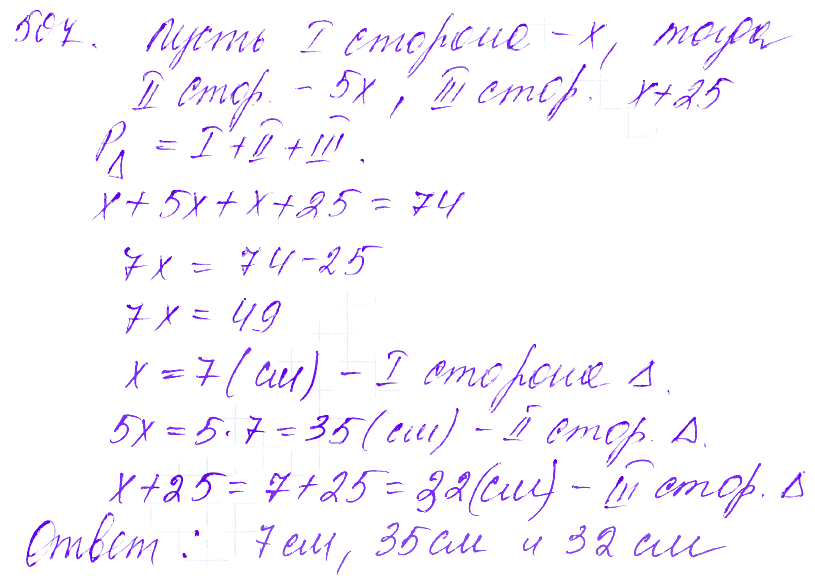 507. Пусть I сторона - x, тогда
II стор. - 5x, III стор. x+25
P△ = I + II + III.
x + 5x + x + 25 = 74
7x = 74 - 25
7x = 49
x = 7 (см) - I сторона △.
5x = 5·7 = 35 (см) - II стор. △.
x + 25 = 7 + 25 = 32 (см) - III стор. △
Ответ: 7 см, 35 см и 32 см